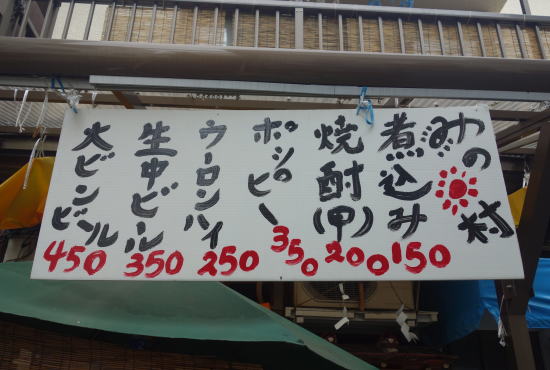 みの村
煮込み 150
焼酎(甲) 200
ホッピー 350
ウーロンハイ 250
生中ビール 350
大ビンビール 450